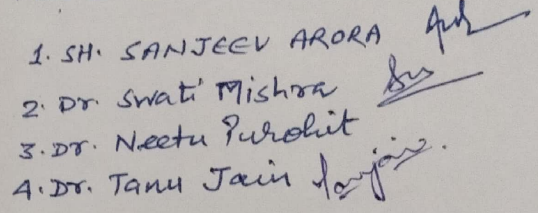 1. SH. SANJEEV ARORA
2. Dr. Swati Mishra
3. Dr. Neetu Purohit
4. Dr. Tanu Jain